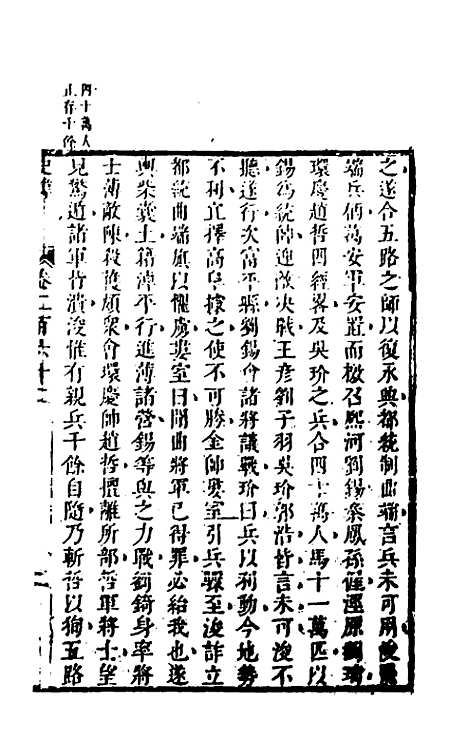 之遂合五路之師以復永興都統制曲端言兵未可用浚
端兵柄萬安軍安置而檄召熙河劉錫秦鳳孫偓涇原劉錡
環慶趙哲四經畧及吳玠之兵合四十萬人馬十一萬匹以
錫為統帥迎敵決戰王彥劉子羽吳玠郭浩皆言未可浚不
聽遂行次富平縣劉錫會諸將議戰玠曰兵以利動今地勢
不利宜擇高阜據之使不可勝金帥婁室引兵驟至浚詐立
都統曲端旗以懼虜婁室曰聞曲將軍已得罪必紿我也遂
輿柴囊土籍淖平行進薄諸營錫等與之力戰劉錡身率將
士薄敵陳殺獲頗衆會環慶師趙哲擅離所部哲軍將士望
見驚遁諸軍皆潰浚惟有親兵千餘自隨乃斬哲以狥五路
四十萬人
止存千餘
卷二百六十二